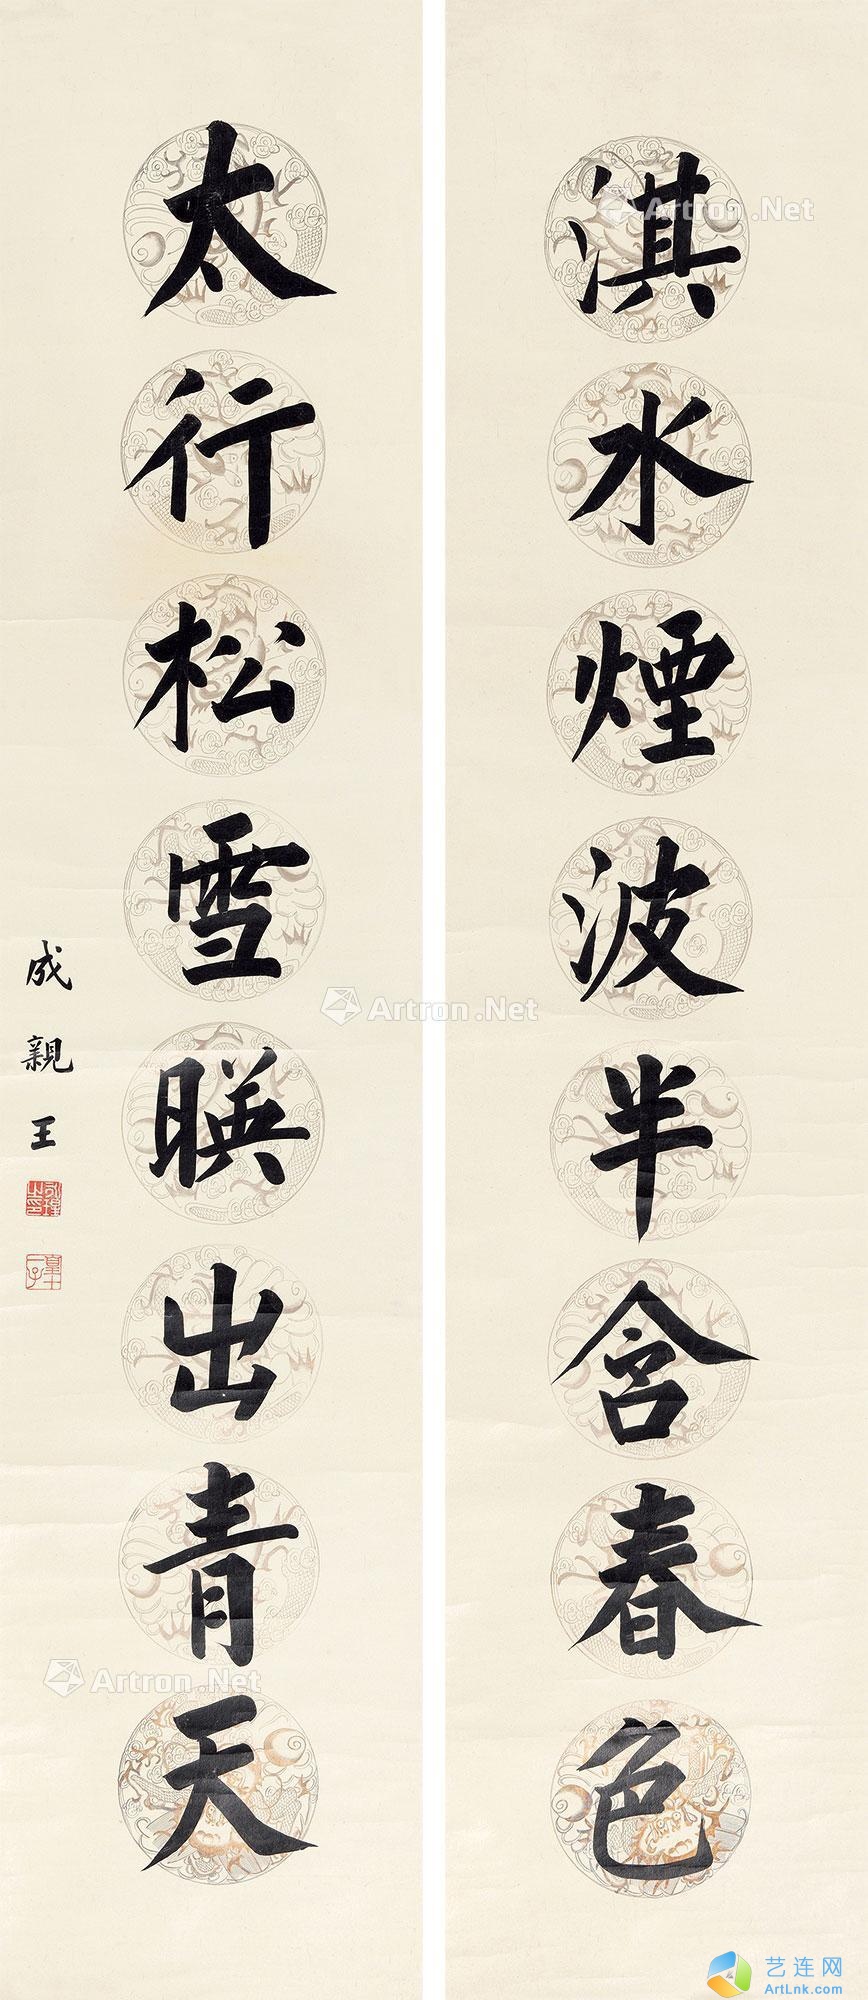 淇水煙波半含春色
太行松雪暎出青天
成親王
永瑆之印
皇十一子
Artron.Net
Artron.Net
Artron.Net
艺连网
ArtLnk.com